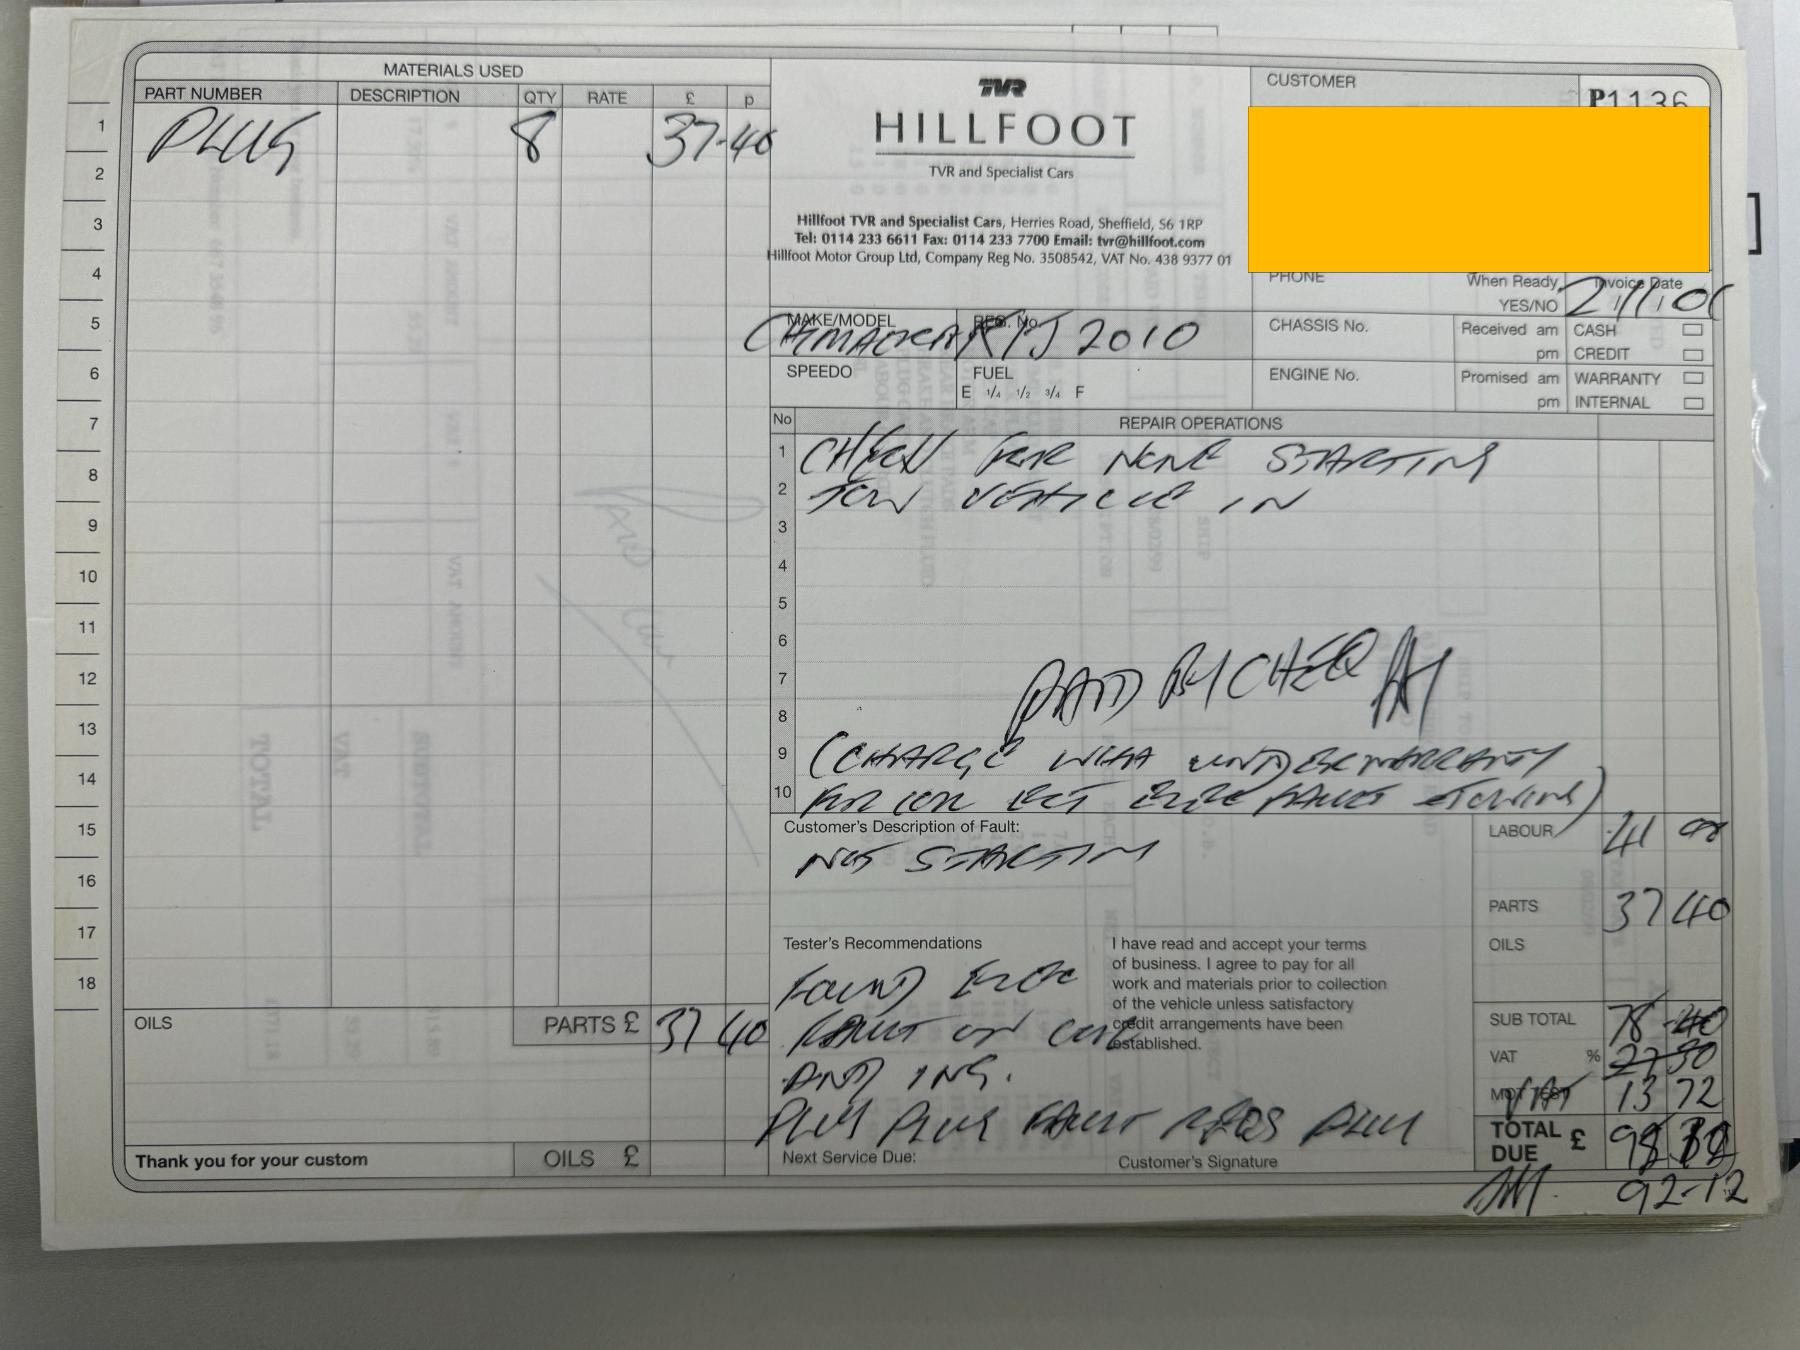 MATERIALS USED
PART NUMBER DESCRIPTION QTY RATE £ p
PLUG 8 37-40
1
2
3
4
5
6
7
8
9
10
11
12
13
14
15
16
17
18
OILS PARTS £ 37 40
Thank you for your custom OILS £
TVR
HILLFOOT
TVR and Specialist Cars
Hillfoot TVR and Specialist Cars, Herries Road, Sheffield, S6 1RP
Tel: 0114 233 6611 Fax: 0114 233 7700 Email: tvr@hillfoot.com
Hillfoot Motor Group Ltd, Company Reg No. 3508542, VAT No. 438 9377 01
CUSTOMER P1136
PHONE When Ready Invoice Date
YES/NO
MAKE/MODEL REG. No.
2010
CHASSIS No. Received am CASH
pm CREDIT
SPEEDO FUEL
E 1/4 1/2 3/4 F
ENGINE No. Promised am WARRANTY
pm INTERNAL
No REPAIR OPERATIONS
1 CHECK FOR NONE STARTING
2 TOW VEHICLE IN
3
4
5
6
7 PAID BY CHEQ
8
9 (CHARGE UNDER WARRANTY
10 FOR FAULT
Customer's Description of Fault:
NOT STARTING
LABOUR 41
PARTS 37 40
OILS
Tester's Recommendations
FOUND
FAULT ON COIL
AND
PLUG PLUG FAULT PLUG
I have read and accept your terms
of business. I agree to pay for all
work and materials prior to collection
of the vehicle unless satisfactory
credit arrangements have been
established.
SUB TOTAL 78-40
VAT %
MOT TEST VAT 13 72
TOTAL
DUE £
Next Service Due: Customer's Signature
92-12